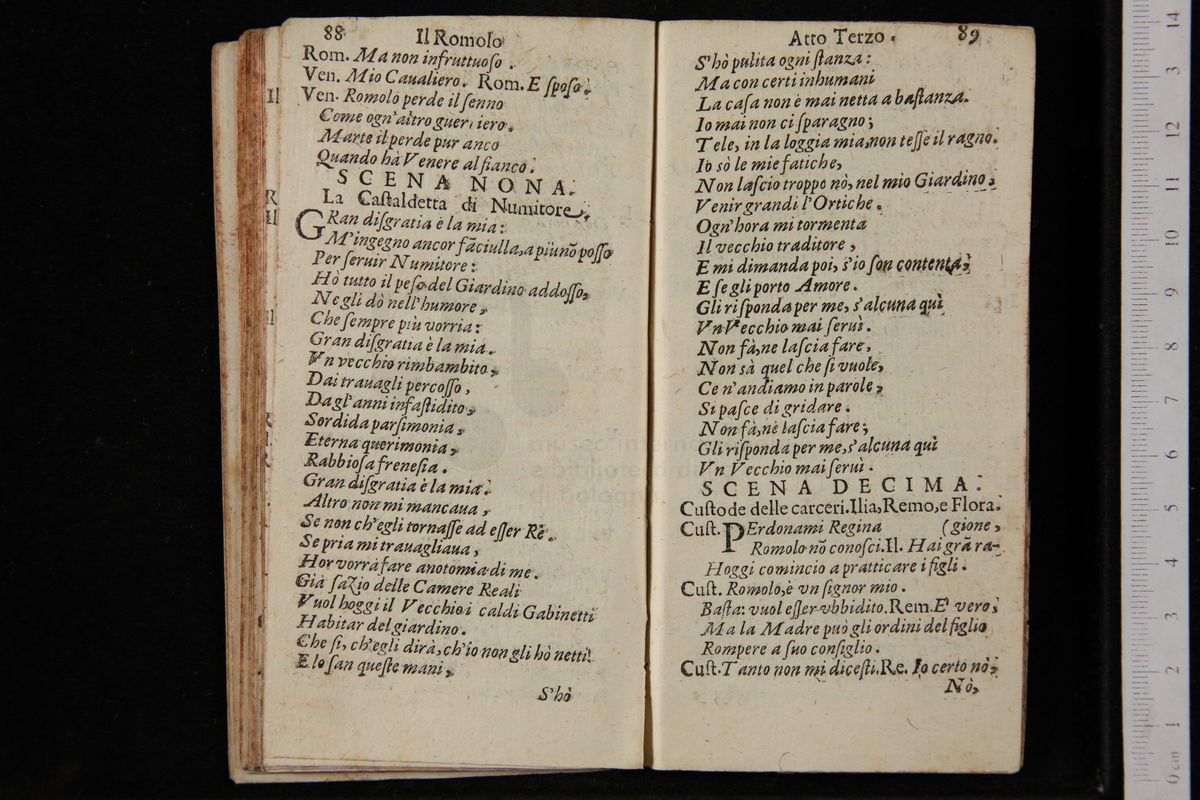 88 Il Romolo
Rom. Ma non infruttuoso.
Ven. Mio Caualiero. Rom. E sposo.
Ven. Romolo perde il senno
Come ogn'altro guerriero.
Marte il perde pur anco
Quando hà Venere al fianco.
SCENA NONA.
La Castaldetta di Numitore.
GRan disgratia è la mia:
M'ingegno ancor fãciulla, a più nõ posso
Per seruir Numitore:
Hò tutto il peso del Giardino addosso,
Ne gli dò nell'humore,
Che sempre più vorria:
Gran disgratia è la mia.
Vn vecchio rimbambito,
Dai trauagli percosso,
Da gl'anni infastidito,
Sordida parsimonia,
Eterna querimonia,
Rabbiosa frenesia.
Gran disgratia è la mia.
Altro non mi mancaua,
Se non ch'egli tornasse ad esser Rè.
Se pria mi trauagliaua,
Hor vorrà fare anotomia di me.
Già sazio delle Camere Reali
Vuol hoggi il Vecchio i caldi Gabinetti
Habitar del giardino.
Che sì, ch'egli dirà, ch'io non gli hò netti!
E lo san queste mani,
S'hò
Atto Terzo. 89
S'hò pulita ogni stanza:
Ma con certi inhumani
La casa non è mai netta a bastanza.
Io mai non ci sparagno;
Tele, in la loggia mia, non tesse il ragno.
Io sò le mie fatiche,
Non lascio troppo nò, nel mio Giardino,
Venir grandi l'Ortiche.
Ogn'hora mi tormenta
Il vecchio traditore,
E mi dimanda poi, s'io son contenta,
E se gli porto Amore.
Gli risponda per me, s'alcuna quì
Vn Vecchio mai seruì.
Non fà, ne lascia fare,
Non sà quel che si vuole,
Ce n'andiamo in parole,
Si pasce di gridare.
Non fà, nè lascia fare;
Gli risponda per me, s'alcuna quì
Vn Vecchio mai seruì.
SCENA DECIMA.
Custode delle carceri. Ilia, Remo, e Flora.
Cust. PErdonami Regina (gione,
Romolo nõ conosci. Il. Hai grã ra-
Hoggi comincio a pratticare i figli.
Cust. Romolo, è vn signor mio.
Basta: vuol esser vbbidito. Rem. E' vero,
Ma la Madre può gli ordini del figlio
Rompere a suo consiglio.
Cust. Tanto non mi dicesti. Re. Io certo nò,
Nò,